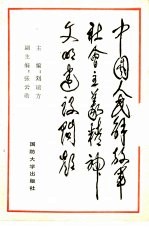 中国人民解放军
社会主义精神
文明建设问题
主编:刘诏方
副主编:张云
国防大学出版社